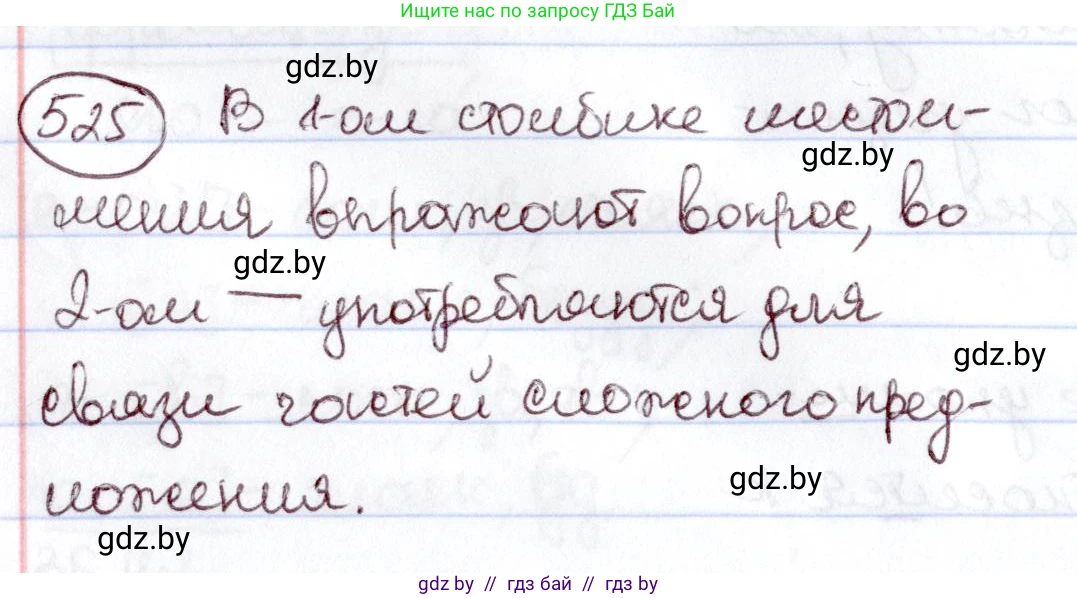 Ищите нас по запросу ГДЗ Бай
gdz.by
525 В 1-ом столбике местои-
gdz.by
мения выражают вопрос, во
gdz.by
2-ом — употребляются для
gdz.by
связи частей сложного пред-
gdz.by
ложения.
gdz.by
gdz by // гдз бай // гдз by